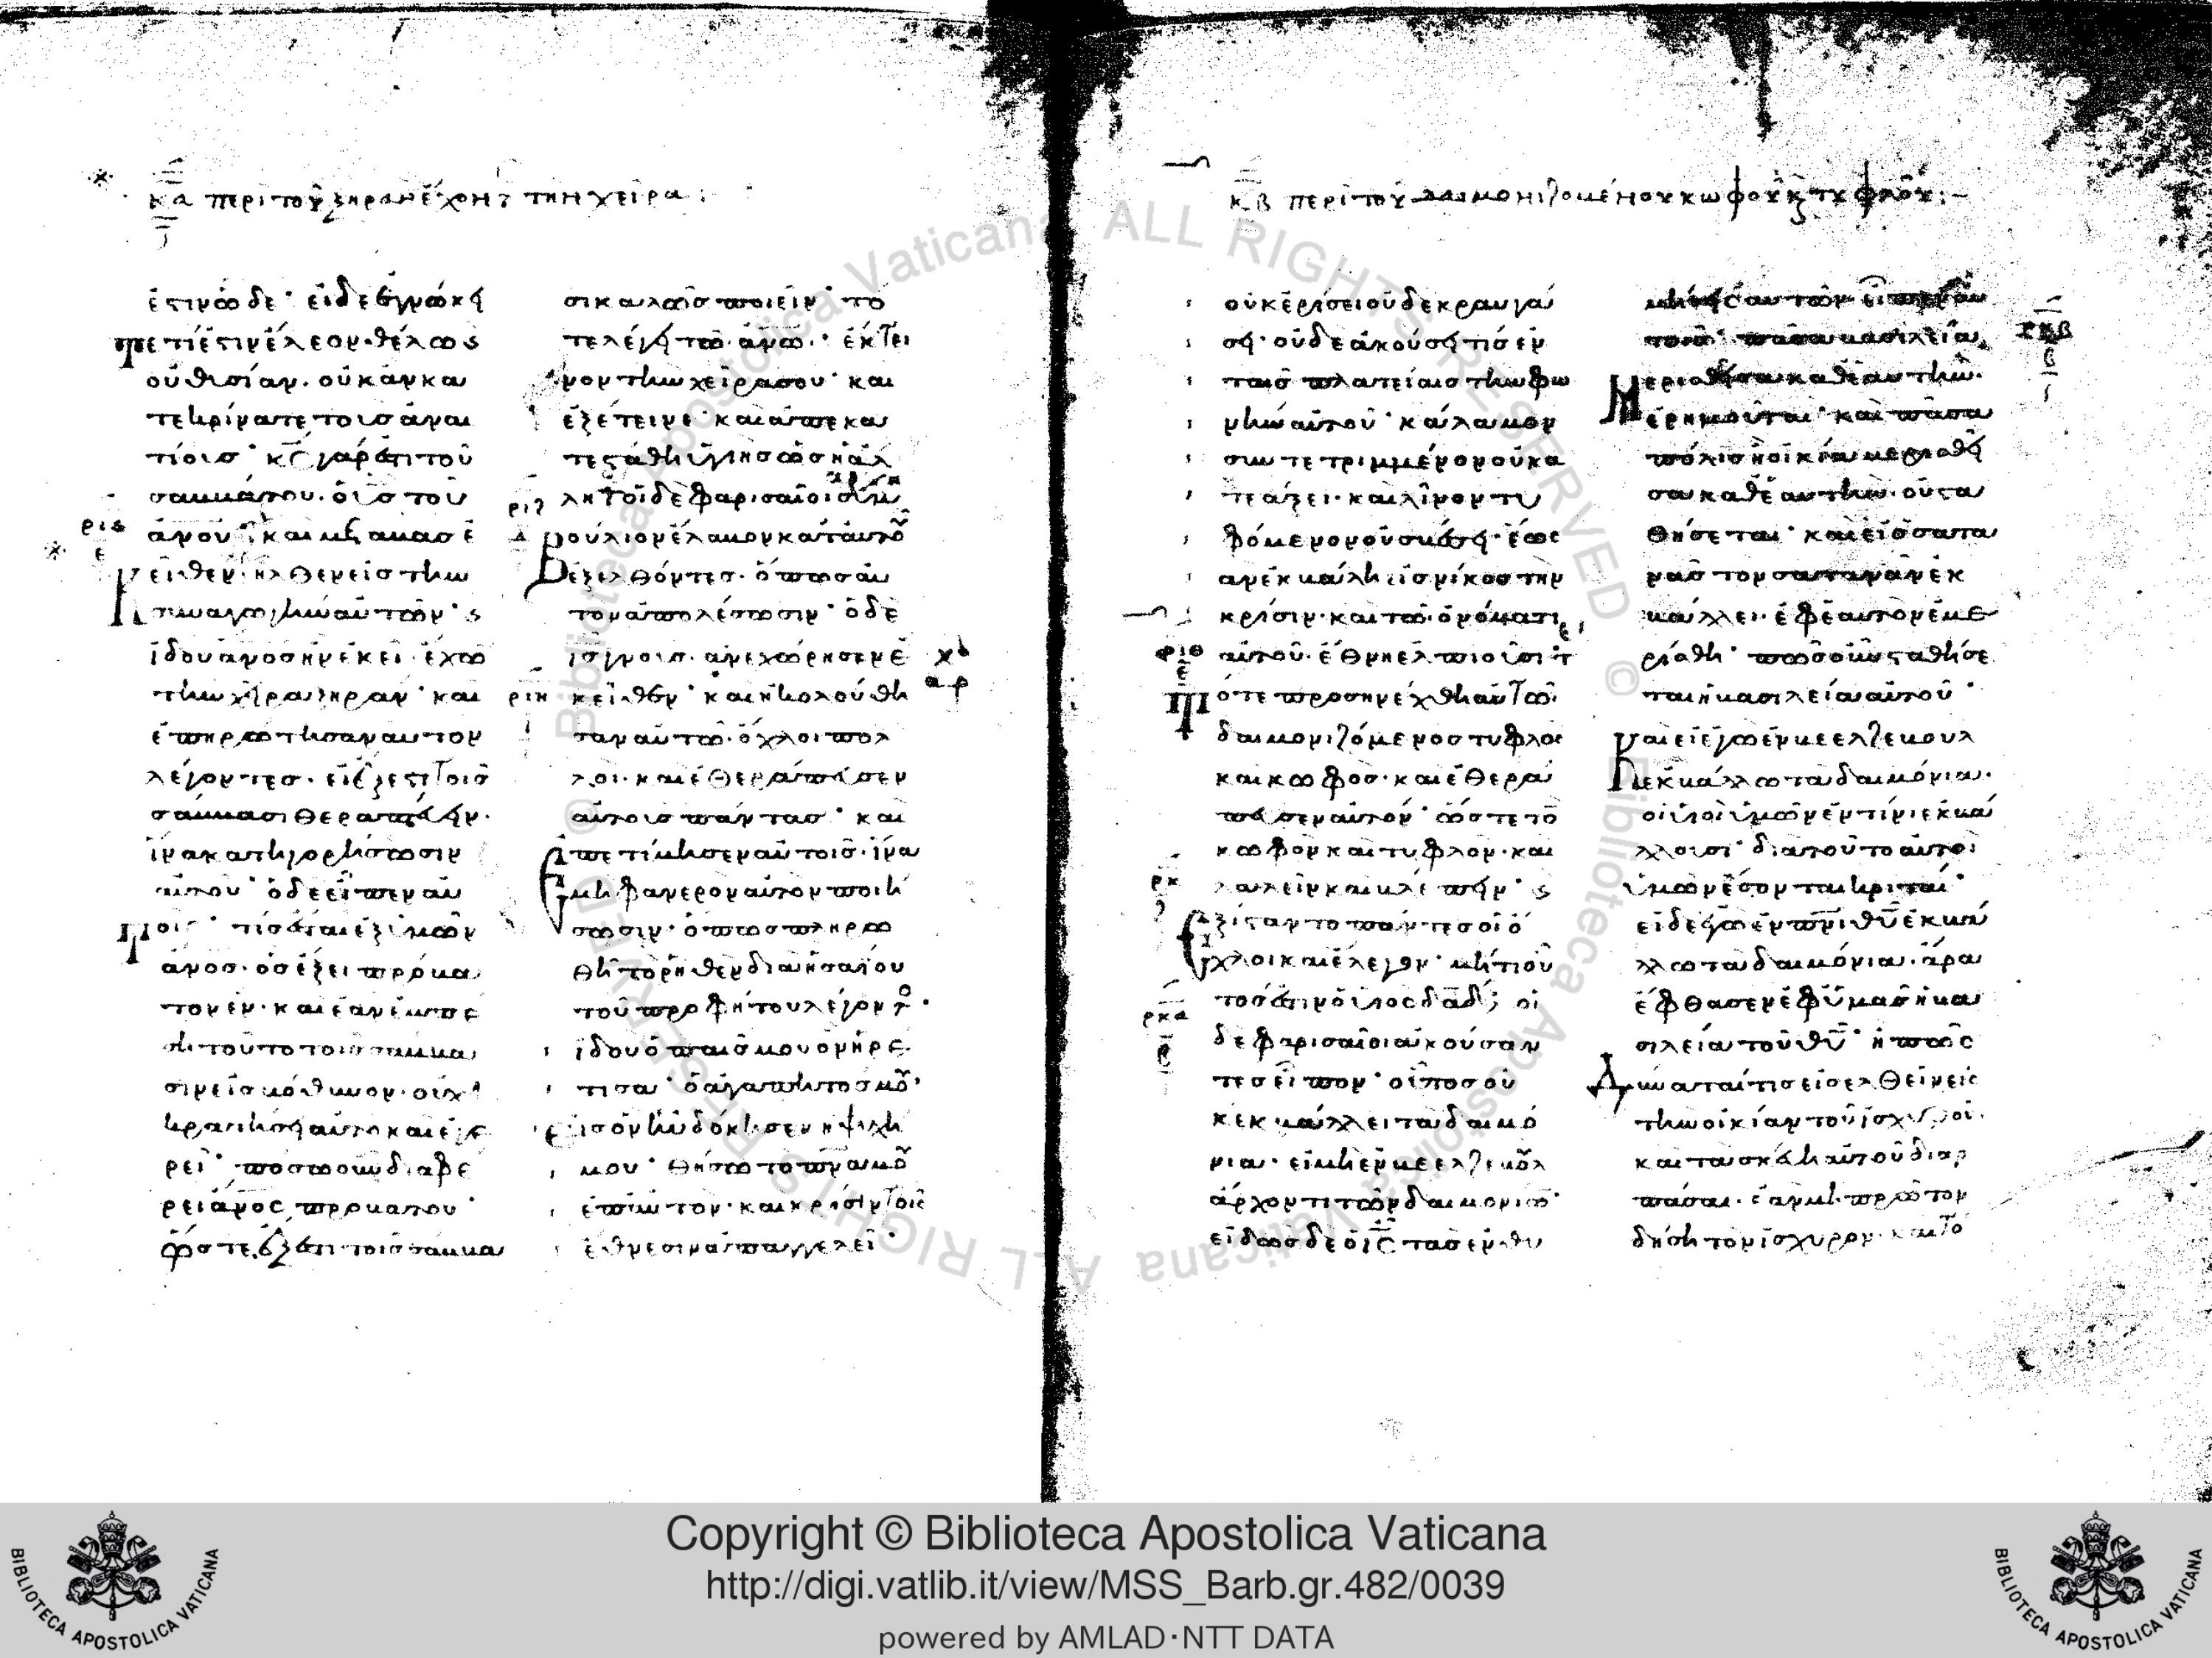 κα περι του ξηραν έχοντ την χειρα :
έστιν ὧδε · εἰ δὲ ἐγνώκει
τε τί ἐστιν έλεον θέλω ς
οὐ θυσίαν. οὐκ ἂν κα
τεδικάσατε τοὺσ ἀναι
τίουσ · κς γάρ ἐστι τοῦ
σαββάτου. ὁ υἱσ τοῦ
ἀνου · και μεταβασ ἐ
κεῖθεν ἦλθεν εἰσ τὴν
συναγωγὴν αὐτῶν · ς
ἰδου ἀνοσ ἦν ἐκεῖ ἔχων
τὴν χεῖρα ξηραν · και
ἐπηρώτησαν αυτον
λέγοντεσ . εἰ ἔξεστι τοισ
σάββασι θεραπεύειν.
ἵνα κατηγορήσωσιν
αὐτου · ὁ δὲ εἶπεν αὐ
τοισ · τίσ ἔσται ἐξ ὑμῶν
ἀνοσ. ὁσ ἕξει πρόβα
τον ἕν · και ἐαν ἐμπέ
ση τοῦτο τοισ σάββα
σιν εἰσ βόθυνον. οὐχὶ
κρατήσει αὐτο και ἐγε
ρεῖ · πόσω οῦν διαφέ
ρει ἄνοσ προβατου ·
ὥστε ἔξεστι τοισ σάββα
σι καλῶσ ποιεῖν · τό
τε λέγει τῶ ἀνω · έκτει
νον τὴν χεῖρα σου · και
ἐξέτεινε · και ἀπεκα
τεστάθη ὑγιησ ὡσ ἡ ἄλ
λη
βούλιον ἔλαβον κατ αὐτοῦ
ἐξελθόντεσ . ὅπωσ αὐ
τον ἀπολέσωσιν · ὁ δὲ
ισ γνουσ. ἀνεχώρησεν ἐ
κεῖθεν · και ἠκολούθη
σαν αὐτῶ. ὄχλοι πολ
λοι. και ἐθεράπευσεν
αὐτουσ πάντασ · και
ἐπετίμησεν αὐτοισ. ἵνα
μη φανερον αὐτον ποιή
σωσιν · ὅπωσ πληρω
θῆ το ρηθεν δια ησαΐου
τοῦ προφήτου λέγοντο .
ἰδου ὁ παισ μου ὃν ἡρέ
τισα · ὁ ἀγαπητοσ μου ·
εἰσ ὃν ηὐδόκησεν ἡ ψυχη
μου · θήσω το πνα μου
ἐπ αὐτον · και κρίσιν τοισ
ἔθνεσιν ἀπαγγελεῖ ·
κβ περι του δαιμονιζομένου κωφου κ τυφλου : -
οὐκ ἐρίσει οὐδε κραυγά
σει · οὐδε ἀκούσει τισ ἐν
ταισ πλατείαισ την φω
νην αὐτοῦ · κάλαμον
συντετριμμένον οὐ κα
τεάξει · και λίνον τυ
φόμενον οὐ σβέσει · ἕωσ
ἂν ἐκβάλη εἰσ νίκοσ την
κρίσιν · και τῶ ὀνόματι
αὐτοῦ. ἔθνη ἐλπιοῦσι · τ
ότε προσηνέχθη αὐτῶ.
δαιμονιζόμενοσ τυφλοσ
και κωφοσ · και ἐθερά
πευσεν αὐτόν · ὥστε το
κωφον και τυφλον . και
λαλεῖν και βλέπειν · ς
ἐξίσταντο πάντεσ οἱ ό
χλοι και ἔλεγον · μήτι οὗ
τόσ ἐστιν ὁ υἱοσ δαδ ; οἱ
δε φαρισαῖοι ἀκούσαν
τεσ εἶπον · οὗτοσ οὐ
κ ἐκβάλλει τα δαιμό
νια · εἰ μη ἐν βεελζεβουλ
ἄρχοντι τῶν δαιμονίων ·
εἰδωσ δε ὁ ις τασ ἐνθυ
μήσεισ αυτῶν εἶπεν αυ
τοισ · πᾶσα βασιλεία
μερισθεῖσα καθ ἑαυτην.
ἐρημοῦται · και πᾶσα
πόλισ ἢ οἰκία μερισθεῖ
σα καθ ἑαυτην. οὐ στα
θήσεται · και εἰ ὁ σατα
νασ τον σατανᾶν ἐκ
βάλλει. ἐφ ἑαυτον ἐμε
ρίσθη · πῶσ οὖν σταθήσε
ται ἡ βασιλεία αὐτοῦ ·
και εἰ ἐγω ἐν βεελζεβουλ
ἐκβάλλω τα δαιμόνια.
οἱ υἱοι ὑμῶν ἐν τίνι ἐκβά
λλουσι · δια τοῦτο αὐτοι
ὑμῶν ἔσονται κριται ·
εἰ δε ἐγω ἐν πνι θυ ἐκβά
λλω τα δαιμόνια. ἄρα
ἔφθασεν ἐφ ὑμασ ἡ βα
σιλεία τοῦ θυ · ἢ πῶσ
δύναται τισ εἰσελθεῖν εἰσ
την οἰκίαν τοῦ ἰσχυροῦ.
και τα σκεύη αὐτοῦ διαρ
πάσαι. ἐαν μη πρῶτον
δήση τον ἰσχυρον. και το
Copyright © Biblioteca Apostolica Vaticana
http://digi.vatlib.it/view/MSS_Barb.gr.482/0039
powered by AMLAD·NTT DATA